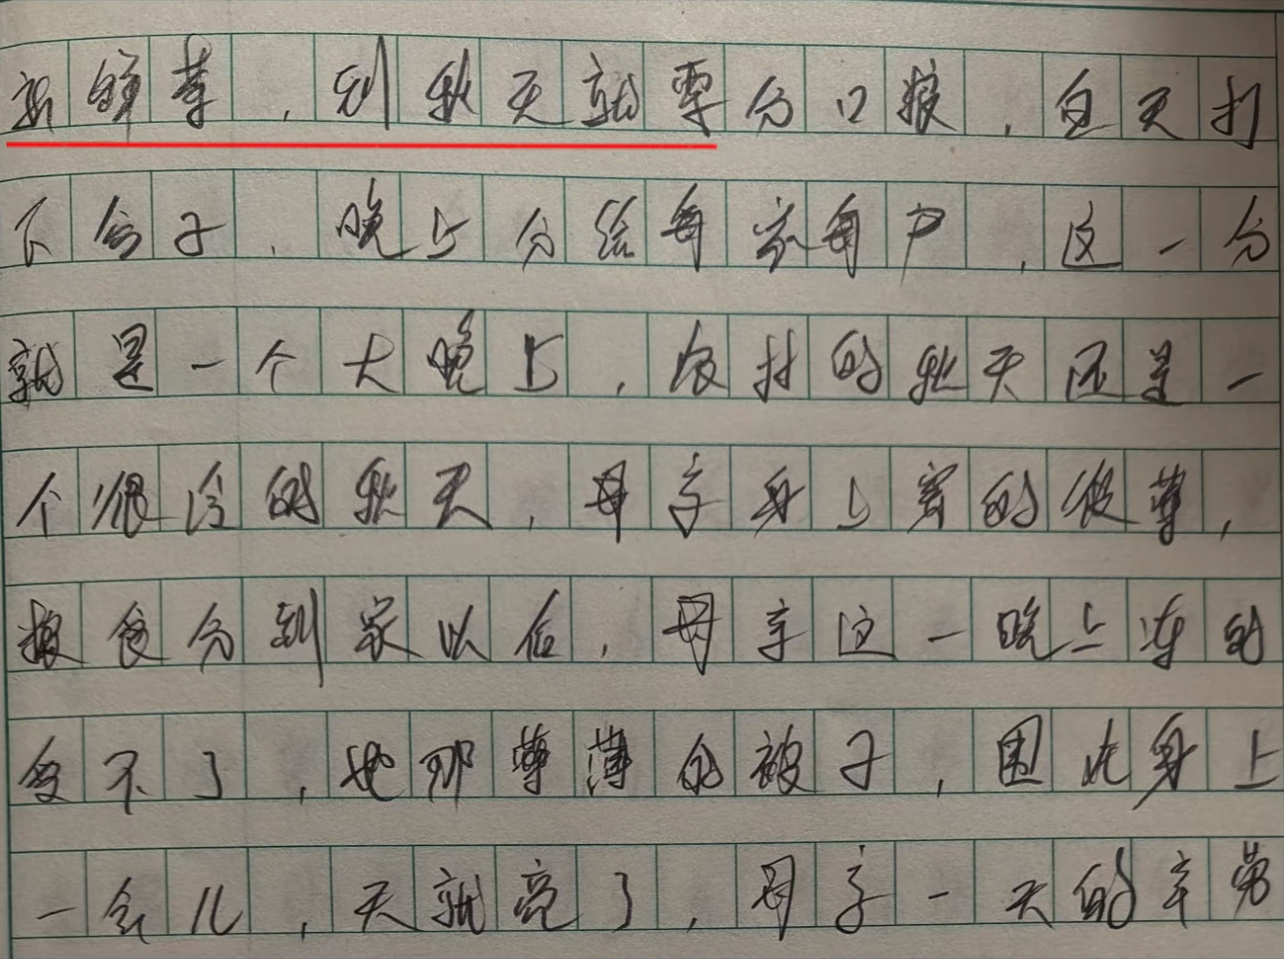 的草，到秋天就要分口粮，白天打
下谷子，晚上分给每家每户，这一分
就是一个大晚上，农村的秋天还是一
个很冷的秋天，母亲身上穿的很薄，
粮食分到家以后，母亲这一晚上冻的
受不了，她那薄薄的被子，围在身上
一会儿，天就亮了，母亲一天的辛劳